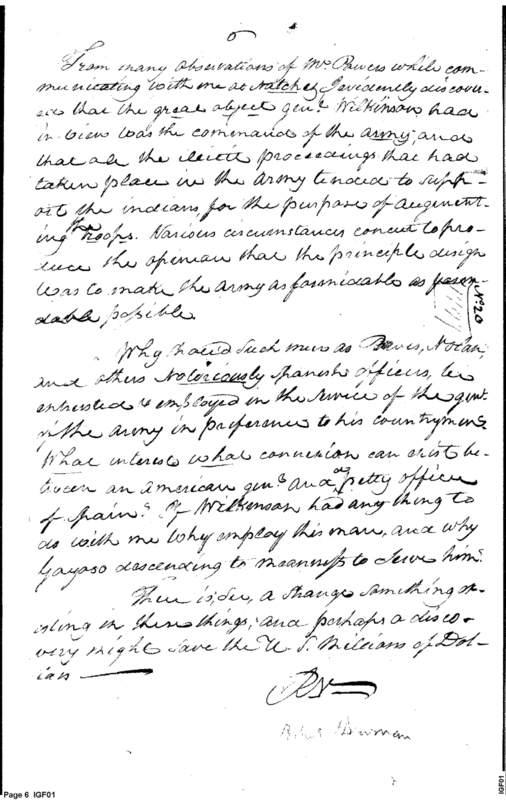 6
From many observations of Mr. Powers while com-
municating with me at Natchez, I evidently discov-
ered that the great object genl. Wilkinson had
in view was the command of the army; and
that all the illicit proceedings that had
taken place in the army tended to supp-
ort the indians, for the purpose of augment-
ing the troops. Various circumstances concur to pro-
duce the opinion that the principle design
was to make the army as formidable as
possible
No. 20
Why should such men as Powers, Nolan,
and others Notoriously Spanish officers, be
entrusted & employed in the service of the genl.
of the army in preference to his countrymen?
What interest what connexion can exist be-
tween an American genl. and a petty officer
of Spain? If Wilkinson had any thing to
do with me why employ this man, and why
Gayoso descending to meanness to serve him?
There is, Sir, a strange something
in these things; and perhaps a disco-
very might save the U. S. Millions of Dol-
lars
Page 6 IGF01
IGF01